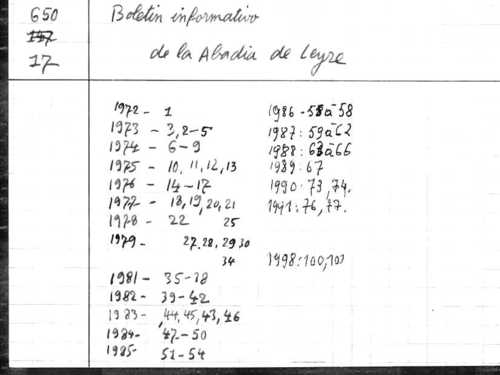 650
Boletin informativo
157
de la Abadia de Leyre
17
1972 - 1
1973 - 3, 2-5
1974 - 6-9
1975 - 10, 11, 12, 13
1976 - 14-17
1977 - 18, 19, 20, 21
1978 - 22 25
1979 - 27, 28, 29 30
34
1981 - 35-38
1982 - 39-42
1983 - 44, 45, 43, 46
1984 - 47-50
1985 - 51-54
1986 - 55 à 58
1987 : 59 à 62
1988 : 63 à 66
1989 : 67
1990 : 73, 74.
1991 : 76, 77.
1998 : 100, 101